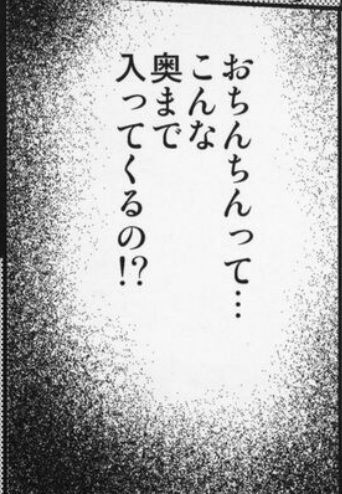 おちんちんって…
こんな
奥まで
入ってくるの!?